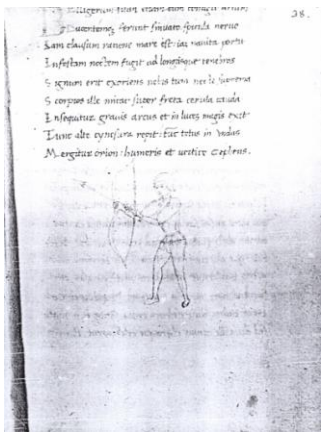 28.
ferunt sinuato spicula nervo
Iam clausum ratione mare est: iam navita portu
Infestam noctem fugit ad longasque tenebras
Signum erit exoriens nobis tum nocte suprema
Scorpius ille micat super freta cerula cauda
Insequitur gravis arcus et in luces magis exit
Tunc alte cynosura redit: tunc totus in undas
Mergitur orion: humeris et vertice Cepheus.